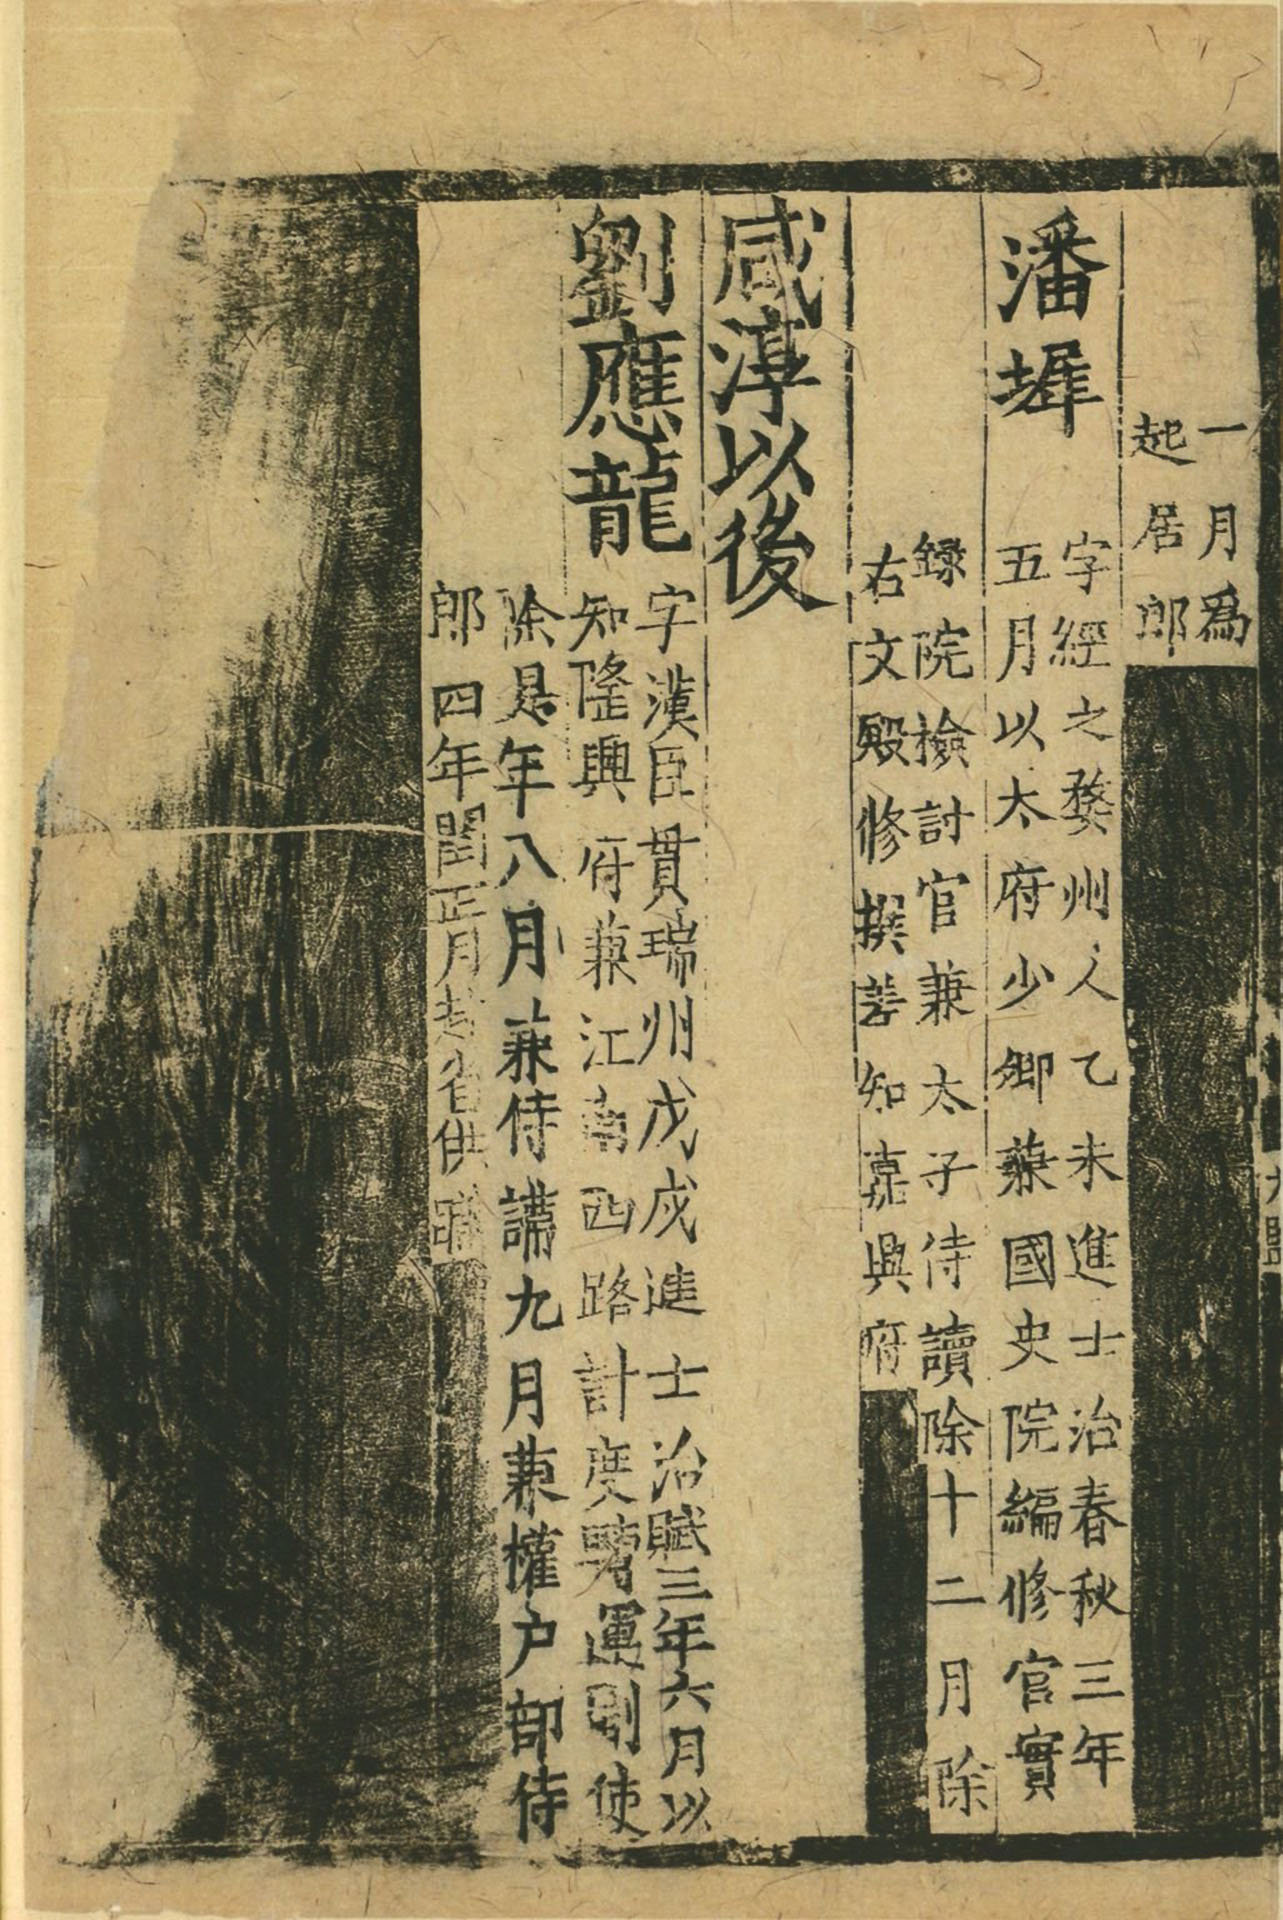 一月爲
起居郎
潘墀
字經之婺州人乙未進士治春秋三年
五月以太府少卿兼國史院編修官實
錄院檢討官兼太子侍讀除十二月除
右文殿修撰差知嘉興府
咸淳以後
劉應龍
字漢臣貫瑞州戊戌進士治賦三年六月以
知隆興府兼江南西路計度轉運副使
除是年八月兼侍講九月兼權户部侍
郎四年閏正月赴省供職